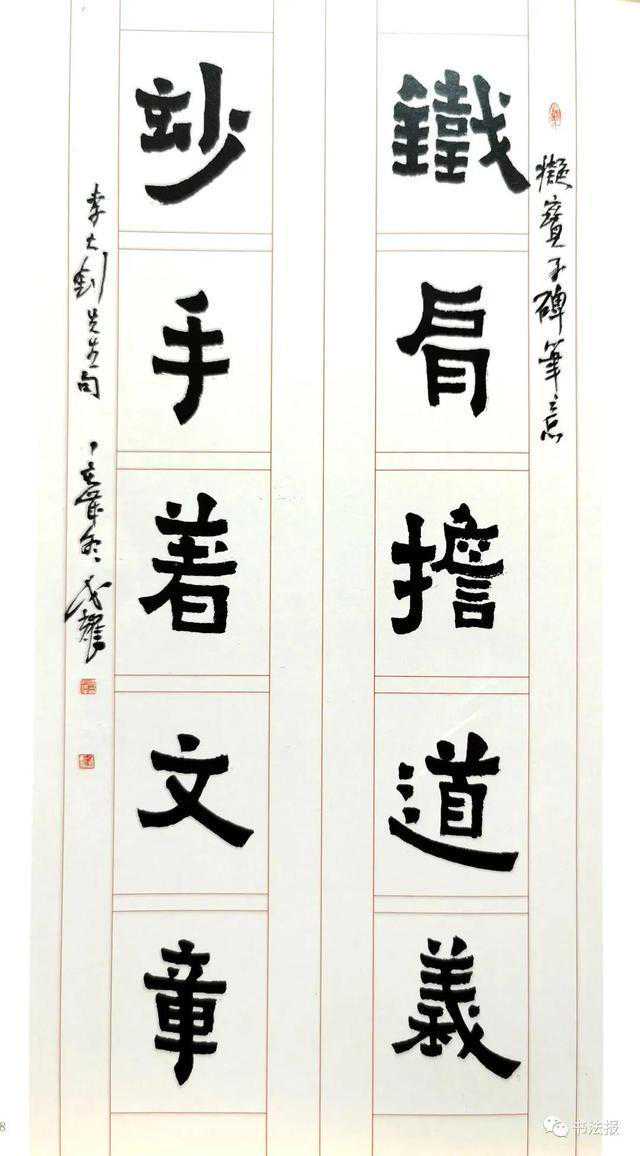 擬寶子碑筆意
鐵肩擔道義
玅手著文章
李大釗先生句 丁亥
8
书法报